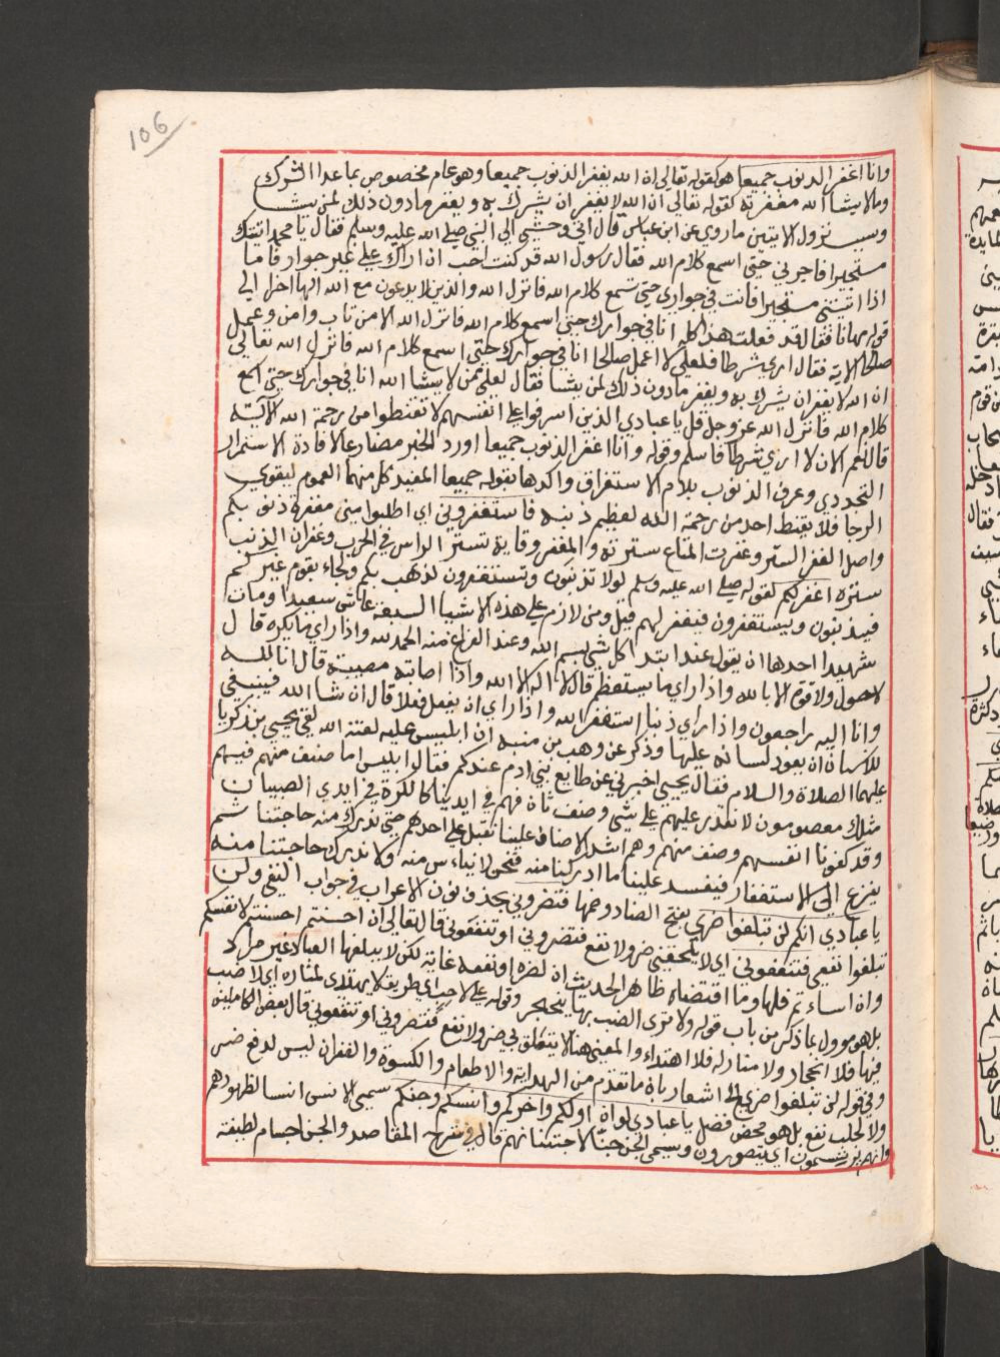 106
وانا اغفر الذنوب جميعا هو كقوله تعالى ان الله يغفر الذنوب جميعا وهو عام مخصوص بما عدا الشرك
وما لا يشا الله مغفرته كقوله تعالى ان الله لا يغفر ان يشرك به ويغفر ما دون ذلك لمن يشا
وسبب نزول الايتين ما روي عن ابن عباس قال اتى وحشي الى النبي صلى الله عليه وسلم فقال يا محمد اتيتك
مستجيرا فاجرني حتى اسمع كلام الله فقال رسول الله قد كنت احب ان اراك على غير جوار فاما
اذا اتيتني مستجيرا فانت في جواري حتى تسمع كلام الله فانزل الله والذين لا يدعون مع الله الها اخر الى
قوله مهانا فقال قد فعلت هذا كله انا في جوارك حتى اسمع كلام الله فانزل الله الا من تاب وامن وعمل
صالحا الاية فقال ارى شرطا فلعلي لا اعمل صالحا انا في جوارك حتى اسمع كلام الله فانزل الله تعالى
ان الله لا يغفر ان يشرك به ويغفر ما دون ذلك لمن يشا فقال لعلي ممن لا يشا الله انا في جوارك حتى اسمع
كلام الله فانزل الله عز وجل قل يا عبادي الذين اسرفوا على انفسهم لا تقنطوا من رحمة الله الآية
قال نعم الان لا ارى شرطا فاسلم وقوله وانا اغفر الذنوب جميعا اورد الخبر مضارعا لافادة الاستمرار
التجددي وعرف الذنوب بلام الاستغراق واكدها بقوله جميعا المفيد كل منهما العموم ليقوى
الرجا فلا يقنط احد من رحمة الله لعظيم ذنبه فاستغفروني اي اطلبوا مني مغفرة ذنوبكم
واصل الغفر الستر وغفرت المتاع سترته والمغفر وقاية تستر الراس في الحرب وغفران الذنب
ستره اغفر لكم لقوله صلى الله عليه وسلم لولا تذنبون وتستغفرون لذهب بكم ولجاء بقوم غيركم
فيذنبون ويستغفرون فيغفر لهم قيل ومن لازم على هذه الاشيا السبعة عاش سعيدا ومات
شهيدا احدها ان يقول عند ابتدا كل شي بسم الله وعند الفراغ منه الحمد لله واذا راى ما يكره قال
لا حول ولا قوة الا بالله واذا راى ما يستعظم قال لا اله الا الله واذا اصابته مصيبة قال انا لله
وانا اليه راجعون واذا راى ذنبا استغفر الله واذا راى ان يفعل فعلا قال ان شا الله فينبغي
للانسان ان يعود لسانه عليها وذكر عن وهب بن منبه ان ابليس عليه لعنة الله لقي يحيى بن زكريا
عليهما الصلاة والسلام فقال يحيى اخبرني عن طبايع بني ادم عندكم فقال ابليس اما صنف منهم فهم
مثلك معصومون لا نقدر عليهم على شي وصنف ثان فهم في ايدينا كالكرة في ايدي الصبيان
وقد كفونا انفسهم وصنف منهم وهم اشد الاصناف علينا نقبل على احدهم حتى ندرك منه حاجتنا ثم
يفزع الى الاستغفار فيفسد علينا ما ادركنا منه فنحن لا نياس منه ولا ندرك حاجتنا منه
يا عبادي انكم لن تبلغوا ضري بفتح الضاد وضمها فتضروني بحذف نون الاعراب في جواب النفي ولن
تبلغوا نفعي فتنفعوني اي لا يلحقني ضر ولا نفع فتضروني او تنفعوني قال تعالى ان احسنتم احسنتم لانفسكم
وان اساءتم فلها وما اقتضاه ظاهر الحديث ان لضره او نفعه غاية لكن لا يبلغها العباد غير مراد
بل هو موول بما ذكر من باب قوله ولا ترى الضب بها ينجحر وقوله على لاحب اي طريق لا يهتدى لمناره اي لا ضب
فيها فلا انجحار ولا منار له فلا اهتداء والمعنى هنا لا يتعلق بي ضر ولا نفع فتضروني او تنفعوني قال بعض الكاملين
وفي قوله لن تبلغوا ضري الى اشعار بان ما تقدم من الهداية والاطعام والكسوة والغفران ليس لدفع ضر
ولا لجلب نفع بل هو محض فضل يا عبادي لو ان اولكم واخركم وانسكم وجنكم سمي الانس انسا لظهورهم
وانهم يونسون اي يبصرون وسمي الجن جنا لاجتنانهم قال في شرح المقاصد والجن اجسام لطيفة